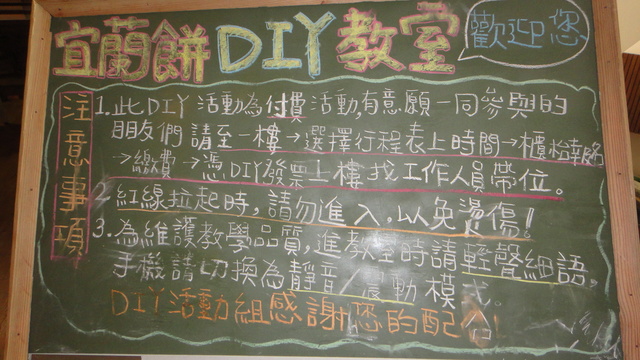 宜蘭餅DIY教室
歡迎您
注意事項
1.此DIY活動為付費活動,有意願一同參與的
朋友們請至一樓→選擇行程表上時間→櫃枱報名
→繳費→憑DIY發票上樓找工作人員帶位。
2.紅線拉起時,請勿進入,以免燙傷!
3.為維護教學品質,進教室時請輕聲細語,
手機請切換為靜音/震動模式。
DIY活動組感謝您的配合!